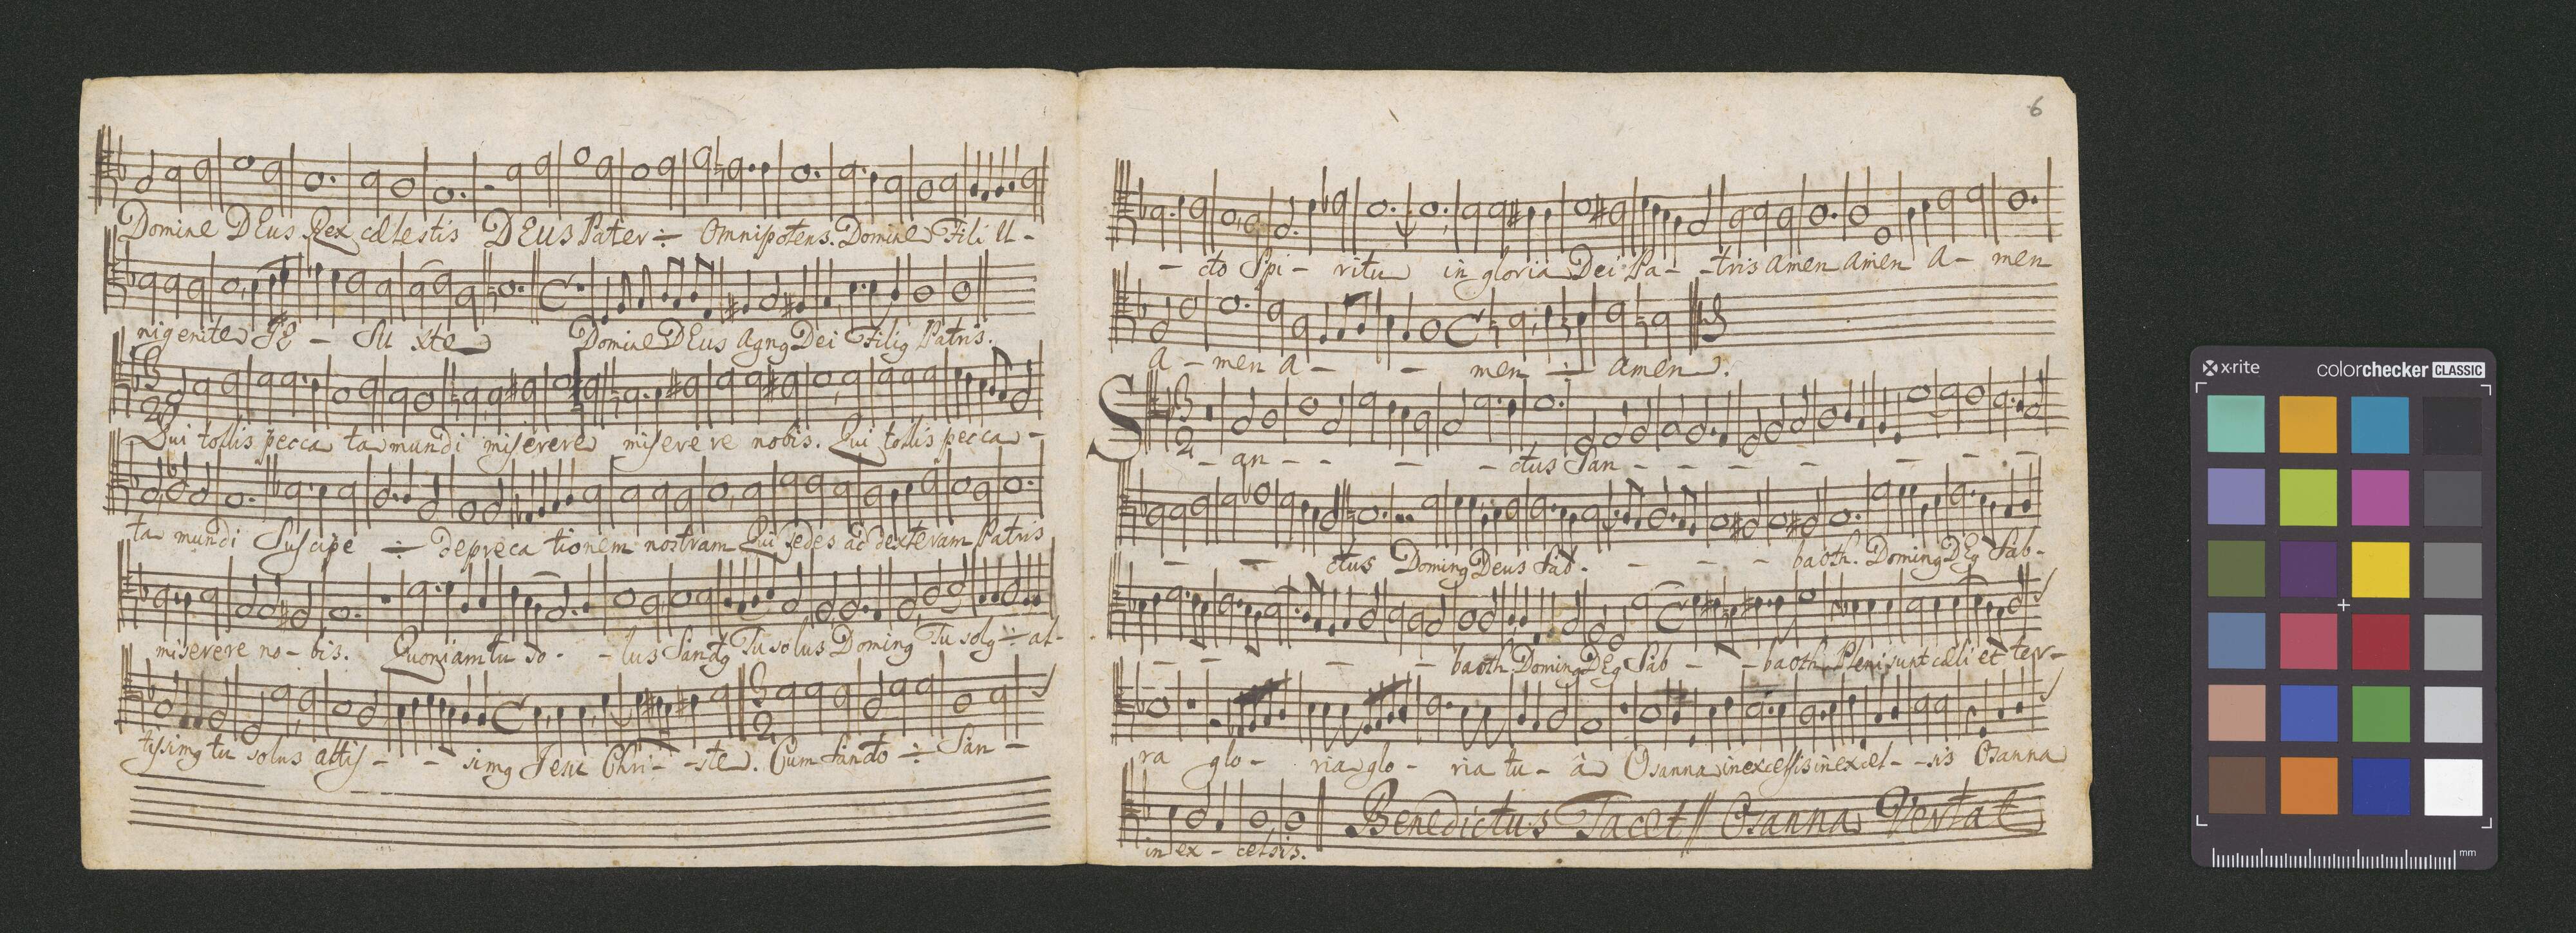 Domine DEus Rex cœlestis DEus Pater ÷ Omnipotens. Domine Fili U-
nigenite JE - Su Xte Domine DEus Agng Dei Filig Patris.
Qui tollis pecca ta mundi miserere misere re nobis. Qui tollis pecca -
ta mundi Suscipe ÷ depreca tionem nostram Qui sedes ad dexteram Patris
miserere no - bis. Quoniam tu so - - lus Sanctg Tu solus Doming Tu solg ÷ al-
tissimg tu solus altis - - simg Jesu Chri - - ste. Cum Sancto ÷ San -
6
- cto Spi - ritu in gloria Dei Pa - - tris Amen Amen A - men
A - men A - - men ÷ Amen.
S - an - - - - ctus San - - - - - - -
- - ctus Doming Deus Sab - - - - baoth. Doming DEg Sab-
- - - - baoth Doming DEg Sab - - baoth Pleni sunt cœli et ter-
ra glo - ria glo - ria tu - a Osanna in excelsis in excel - - sis Osanna
in ex - celsis. Benedictus Tacet // Osanna Vertat
x·rite colorchecker CLASSIC
mm